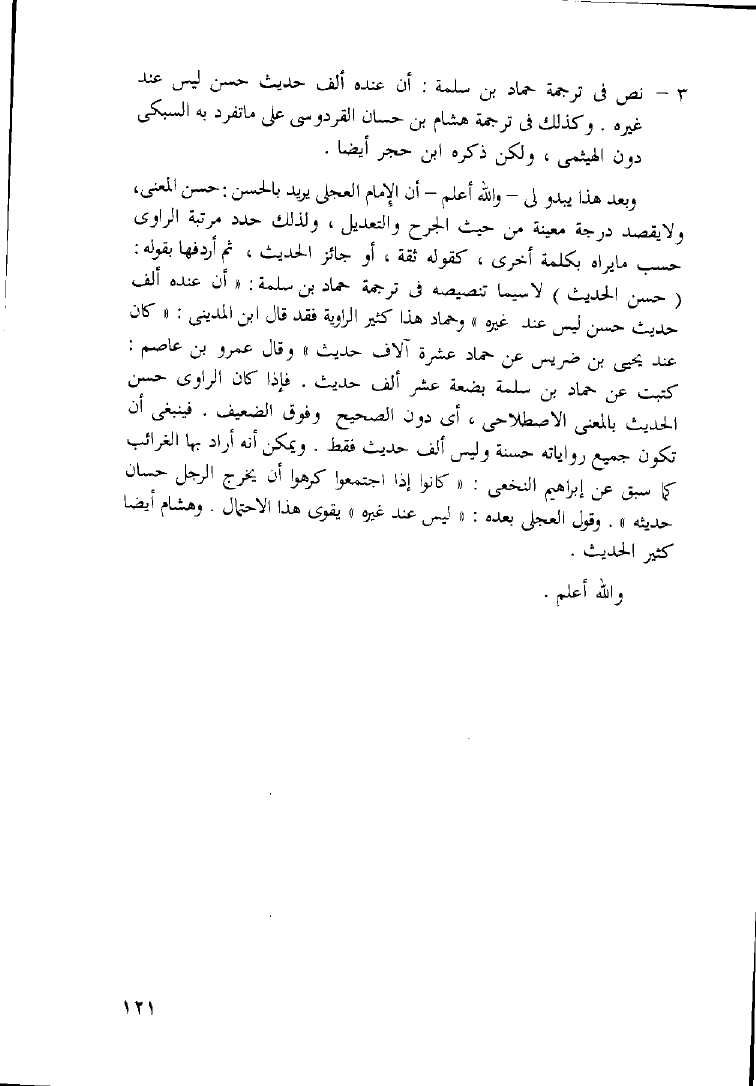 ٣ – نص فى ترجمة حماد بن سلمة : أن عنده ألف حديث حسن ليس عند
غيره . وكذلك فى ترجمة هشام بن حسان القردوسى على ماتفرد به السبكى
دون الهيثمى ، ولكن ذكره ابن حجر أيضا .
وبعد هذا يبدو لى – والله أعلم – أن الإمام العجلى يريد بالحسن : حسن المعنى،
ولايقصد درجة معينة من حيث الجرح والتعديل ، ولذلك حدد مرتبة الراوى
حسب مايراه بكلمة أخرى ، كقوله ثقة ، أو جائز الحديث ، ثم أردفها بقوله :
( حسن الحديث ) لاسيما تنصيصه فى ترجمة حماد بن سلمة : « أن عنده ألف
حديث حسن ليس عند غيره » وحماد هذا كثير الراوية فقد قال ابن المدينى : « كان
عند يحيى بن ضريس عن حماد عشرة آلاف حديث » وقال عمرو بن عاصم :
كتبت عن حماد بن سلمة بضعة عشر ألف حديث . فإذا كان الراوى حسن
الحديث بالمعنى الاصطلاحى ، أى دون الصحيح وفوق الضعيف . فينبغى أن
تكون جميع رواياته حسنة وليس ألف حديث فقط . ويمكن أنه أراد بها الغرائب
كما سبق عن إبراهيم النخعى : « كانوا إذا اجتمعوا كرهوا أن يخرج الرجل حسان
حديثه » . وقول العجلى بعده : « ليس عند غيره » يقوى هذا الاحتمال . وهشام أيضا
كثير الحديث .
والله أعلم .
١٢١